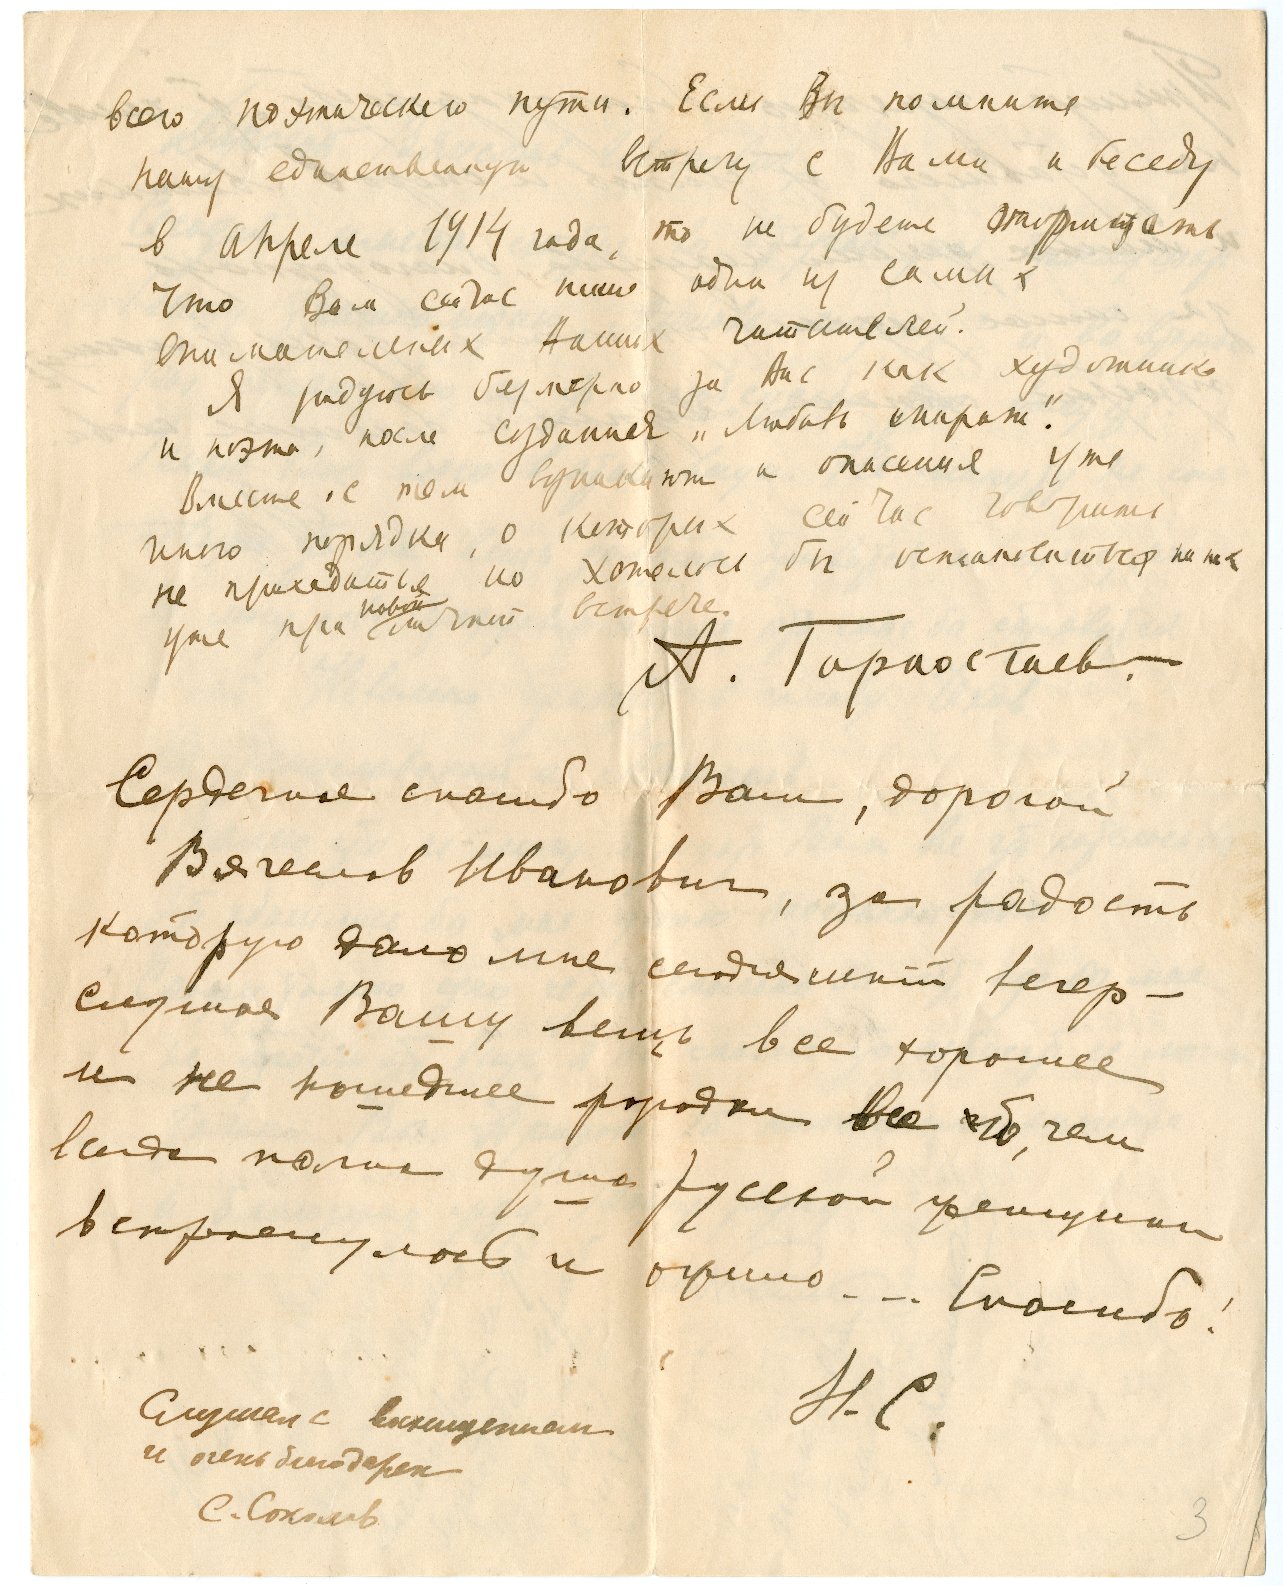 всего поэтическего пути. Если Вы помните
нашу единственную встречу с Вами и беседу
в апреле 1914 года, то не будете отрицать
что Вам сейчас пише один из самых
внимательных Ваших читателей.
Я радуюсь безмерно за Вас как художника
и поэта, после создания „Любовь мираж".
Вместе с тем возникают и опасения уже
иного порядка, о которых сейчас говорить
не приходиться но хотелось бы остановиться на них
уже при новой личной встрече.
А. Горностаев.
Сердечное спасибо Вам, дорогой
Вячеслав Иванович, за радость
которую дало мне сегодняшний вечер –
слушая Вашу вещь все хорошее
и не пошедшее все то, чем
всегда полна душа русской женщины
встрепенулось и ожило... Спасибо!
Н. С.
Слушал с восхищением
и очень благодарен
С. Соколов
3